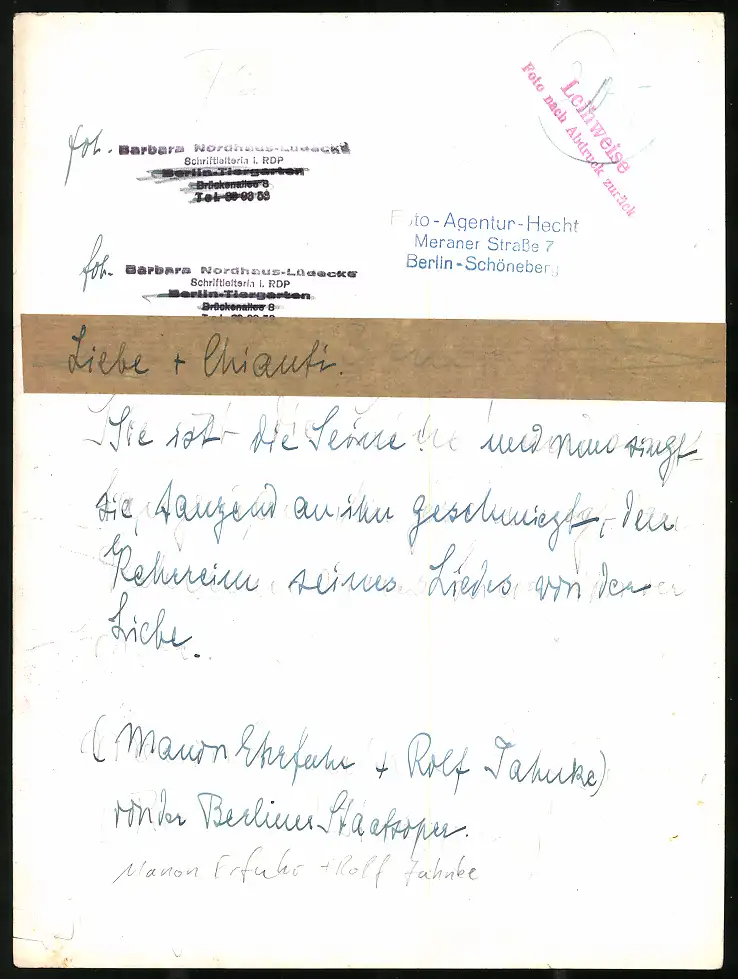 Leihweise
Foto nach Abdruck zurück
fot. Barbara Nordhaus-Lüdecke
Schriftleiterin i. RDP
Berlin-Tiergarten
Brückenallee 8
Foto-Agentur-Hecht
Meraner Straße 7
Berlin-Schöneberg
fot. Barbara Nordhaus-Lüdecke
Schriftleiterin i. RDP
Berlin-Tiergarten
Brückenallee 8
Liebe + Chianti.
Sie ist die Seine! und nun singt
sie, tanzend an ihn geschmiegt, den
Kehrreim seines Liedes von der
Liebe.
(Manon Ehrfuhr + Rolf Jahnke)
von der Berliner Staatsoper.
Manon Erfuhr + Rolf Jahnke